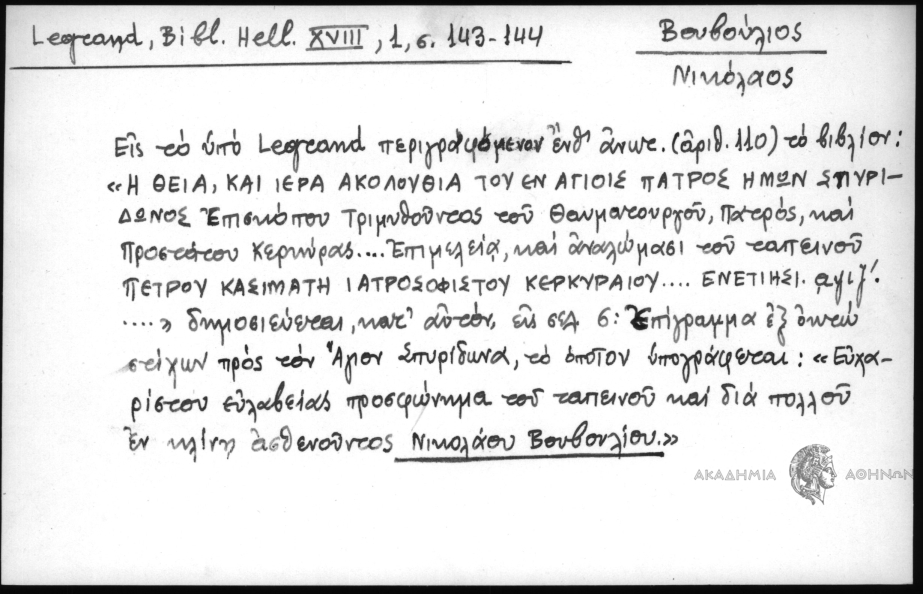 Legrand, Bibl. Hell. XVIII, 1, σ. 143-144
Βουβούλιος
Νικόλαος
Εἰς τὸ ὑπὸ Legrand περιγραφόμενον ἔνθ' ἄνωτ. (ἀριθ. 110) τὸ βιβλίον:
«Η ΘΕΙΑ, ΚΑΙ ΙΕΡΑ ΑΚΟΛΟΥΘΙΑ ΤΟΥ ΕΝ ΑΓΙΟΙΣ ΠΑΤΡΟΣ ΗΜΩΝ ΣΠΥΡΙ-
ΔΩΝΟΣ Ἐπισκόπου Τριμυθοῦντος τοῦ Θαυματουργοῦ, Πατρός, καὶ
Προστάτου Κερκύρας.... Ἐπιμελείᾳ, καὶ ἀναλώμασι τοῦ ταπεινοῦ
ΠΕΤΡΟΥ ΚΑΣΙΜΑΤΗ ΙΑΤΡΟΣΟΦΙΣΤΟΥ ΚΕΡΚΥΡΑΙΟΥ.... ΕΝΕΤΙΗΣΙ. αψιζ'.
....» δημοσιεύεται, κατ' αὐτόν, εἰς σελ 6: Ἐπίγραμμα ἐξ ὀκτὼ
στίχων πρὸς τὸν Ἅγιον Σπυρίδωνα, τὸ ὁποῖον ὑπογράφεται: «Εὐχα-
ρίστου εὐλαβείας προσφώνημα τοῦ ταπεινοῦ καὶ διὰ πολλοῦ
ἐν κλίνῃ ἀσθενοῦντος Νικολάου Βουβουλίου.»
ΑΚΑΔΗΜΙΑ ΑΘΗΝΩΝ